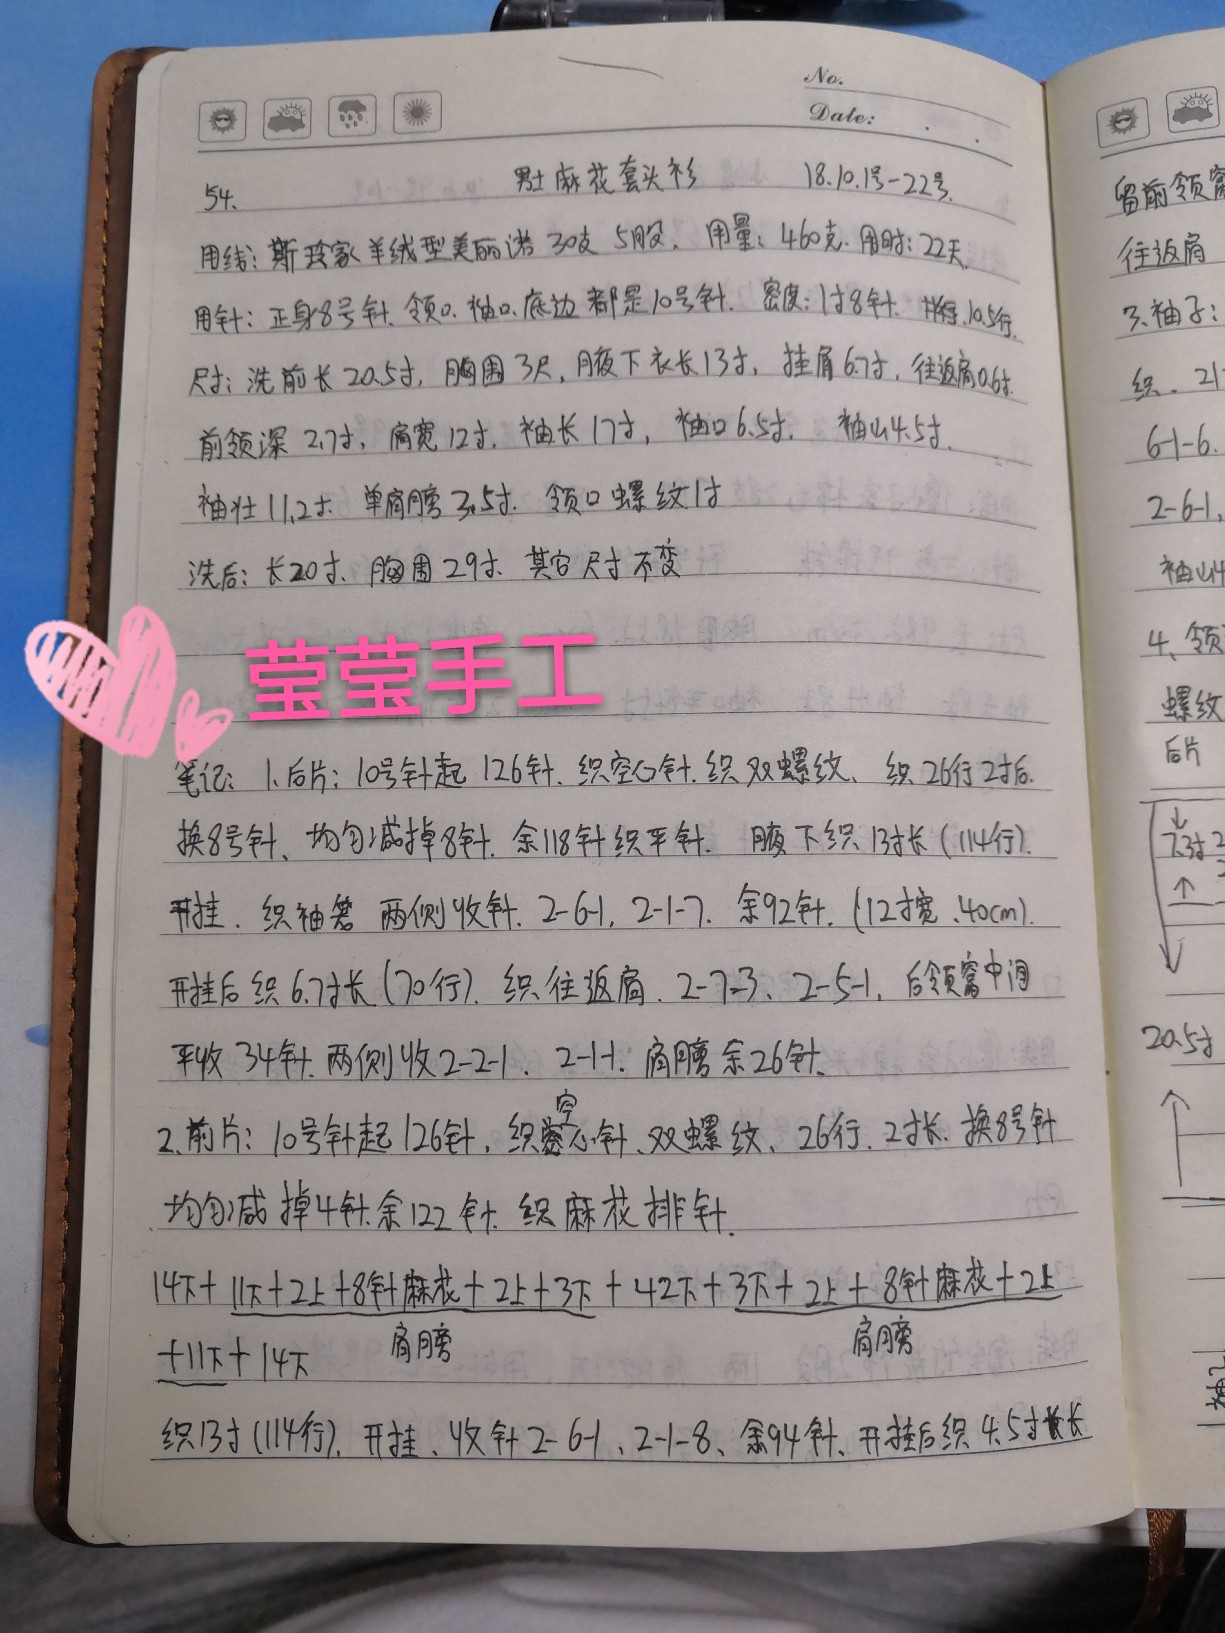 No.
Date:
54. 男士麻花套头衫 18.10.1号-22号
用线：斯玲家羊绒型美丽诺30支 5股. 用量：460克. 用时：22天.
用针：正身8号针. 领口. 袖口. 底边都是10号针. 密度：1寸8针. 10.5行.
尺寸：洗前长20.5寸, 胸围3尺, 腋下衣长13寸, 挂肩6.7寸, 往返肩0.6寸.
前领深2.7寸, 肩宽12寸, 袖长17寸, 袖口6.5寸. 袖山4.5寸.
袖壮11.2寸. 单肩膀3.5寸. 领口螺纹1寸
洗后：长20寸. 胸围29寸. 其它尺寸不变
莹莹手工
笔记：1.后片：10号针起126针. 织空心针. 织双螺纹、织26行2寸后.
换8号针、均匀减掉8针. 余118针织平针. 腋下织13寸长(114行).
开挂. 织袖窿 两侧收针. 2-6-1, 2-1-7. 余92针. (12寸宽.40cm).
开挂后织6.7寸长(70行). 织往返肩. 2-7-3、2-5-1, 后领窝中间
平收34针. 两侧收2-2-1. 2-1-1. 肩膀余26针.
2.前片：10号针起126针, 织空心针、双螺纹、26行. 2寸长. 换8号针
均匀减掉4针. 余122针. 织麻花排针.
14下+11下+2上+8针麻花+2上+3下+42下+3下+2上+8针麻花+2上
肩膀 肩膀
+11下+14下
织13寸(114行). 开挂、收针2-6-1、2-1-8、余94针、开挂后织4.5寸长
留前领窝
往返肩
3.袖子：
织. 21
6-1-6.
2-6-1,
袖山4
4、领
螺纹
后片
7.3寸
20.5寸